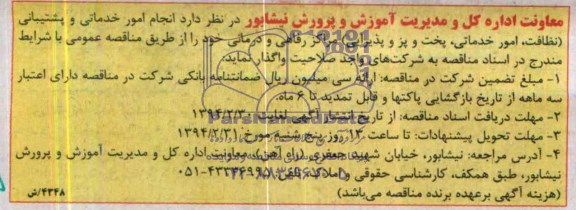 معاونت اداره کل و مدیریت آموزش و پرورش نیشابور در نظر دارد انجام امور خدماتی و پشتیبانی
(نظافت، امور خدماتی، پخت و پز و پذیرایی مراکز رفاهی و درمانی خود را از طریق مناقصه عمومی با شرایط
مندرج در اسناد مناقصه به شرکت‌های واجد صلاحیت واگذار نماید.
۱- مبلغ تضمین شرکت در مناقصه: ارائه سی میلیون ریال ضمانتنامه بانکی شرکت در مناقصه دارای اعتبار
سه ماهه از تاریخ بازگشایی پاکتها و قابل تمدید تا ۶ ماه.
۲- مهلت دریافت اسناد مناقصه: از تاریخ انتشار آگهی لغایت ۱۳۹۴/۲/۳۰
۳- مهلت تحویل پیشنهادات: تا ساعت ۱۳ روز پنج شنبه مورخ ۱۳۹۴/۲/۳۱
۴- آدرس مراجعه: نیشابور، خیابان شهید جعفری (راه آهن)، معاونت اداره کل و مدیریت آموزش و پرورش
نیشابور، طبق همکف، کارشناسی حقوقی و املاک تلفن ۰۵۱-۴۳۳۳۶۹۹۵
(هزینه آگهی برعهده برنده مناقصه می‌باشد)
۴۳۴۸/ش
ParsNamadData